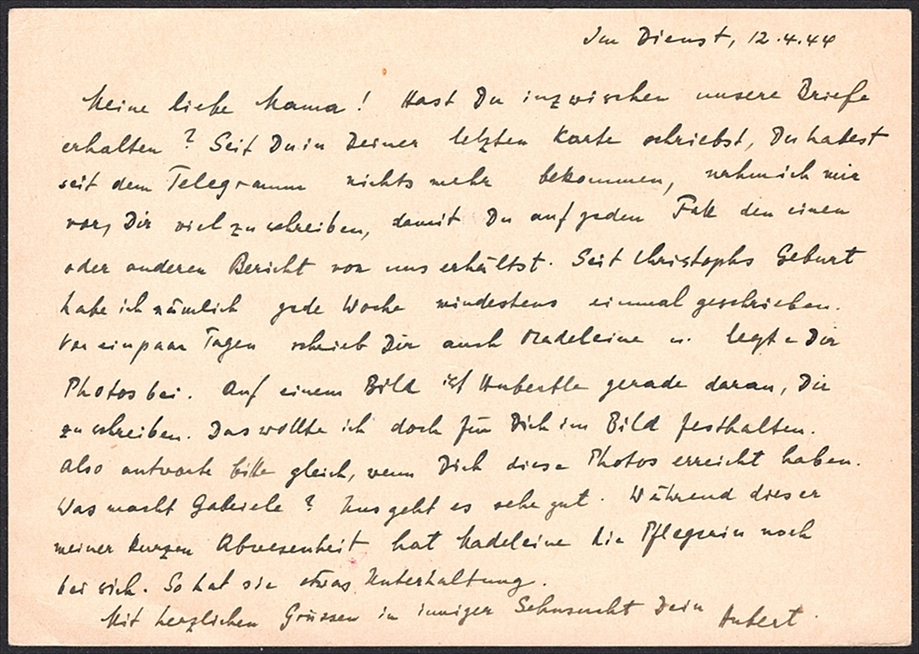 Im Dienst, 12.4.44
Meine liebe Mama! Hast Du inzwischen unsere Briefe
erhalten? Seit Du in Deiner letzten Karte schriebst, Du habest
seit dem Telegramm nichts mehr bekommen, nahm ich mir
vor, Dir viel zu schreiben, damit Du auf jeden Fall den einen
oder anderen Bericht von uns erhältst. Seit Christophs Geburt
habe ich nämlich jede Woche mindestens einmal geschrieben.
Vor ein paar Tagen schrieb Dir auch Madeleine u. legte Dir
Photos bei. Auf einem Bild ist Hubertle gerade daran, Dir
zu schreiben. Das wollte ich doch für Dich im Bild festhalten.
Also antworte bitte gleich, wenn Dich diese Photos erreicht haben.
Was macht Gabriele? Uns geht es sehr gut. Während dieser
meiner kurzen Abwesenheit hat Madeleine die Pflegerin noch
bei sich. So hat sie etwas Unterhaltung.
Mit herzlichen Grüssen in inniger Sehnsucht Dein Hubert.